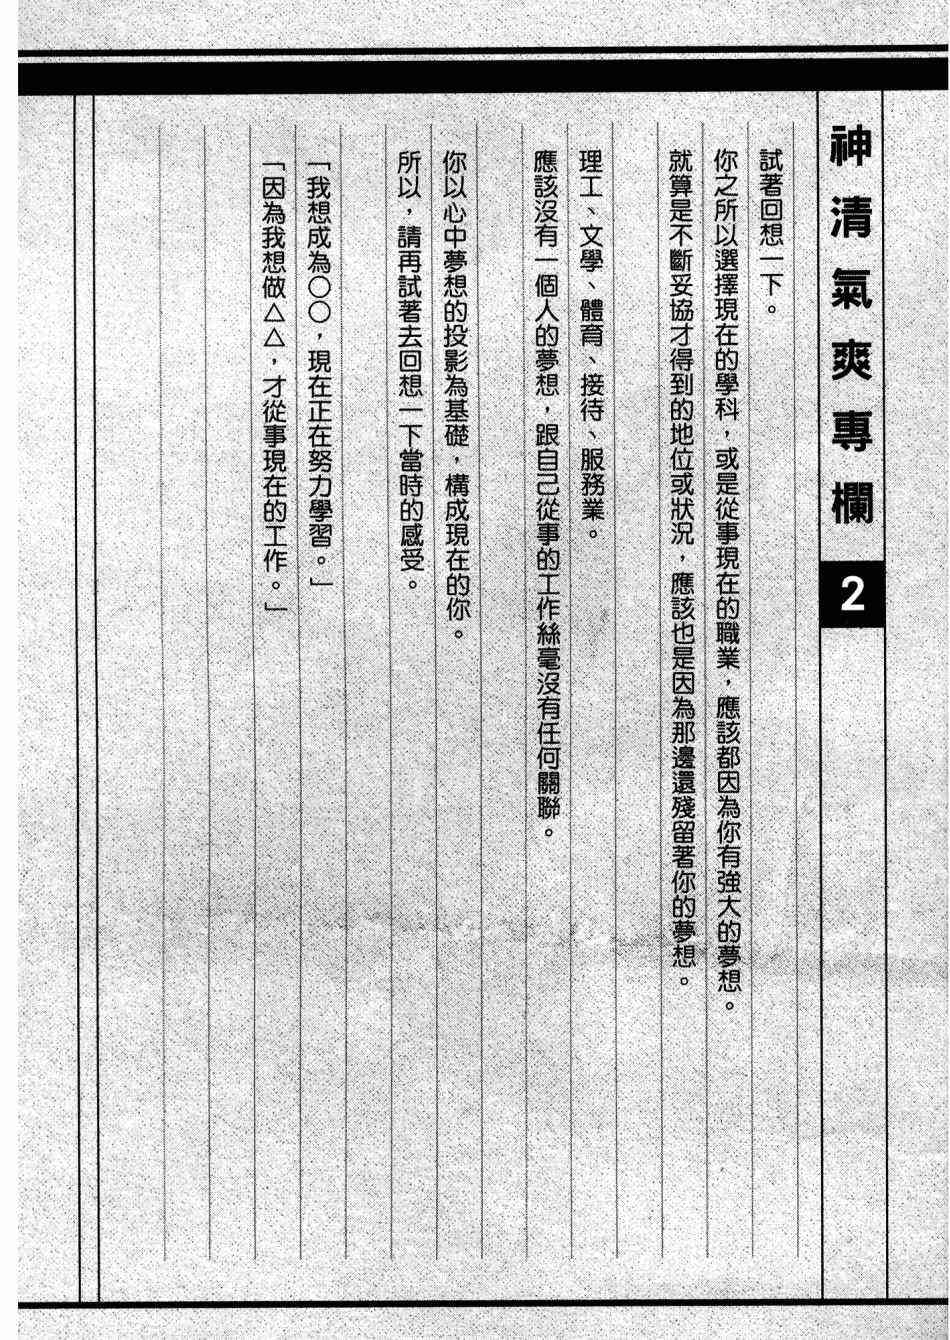 神清氣爽專欄 2
試著回想一下。
你之所以選擇現在的學科，或是從事現在的職業，應該都因為你有強大的夢想。
就算是不斷妥協才得到的地位或狀況，應該也是因為那邊還殘留著你的夢想。
理工、文學、體育、接待、服務業。
應該沒有一個人的夢想，跟自己從事的工作絲毫沒有任何關聯。
你以心中夢想的投影為基礎，構成現在的你。
所以，請再試著去回想一下當時的感受。
「我想成為〇〇，現在正在努力學習。」
「因為我想做△△，才從事現在的工作。」